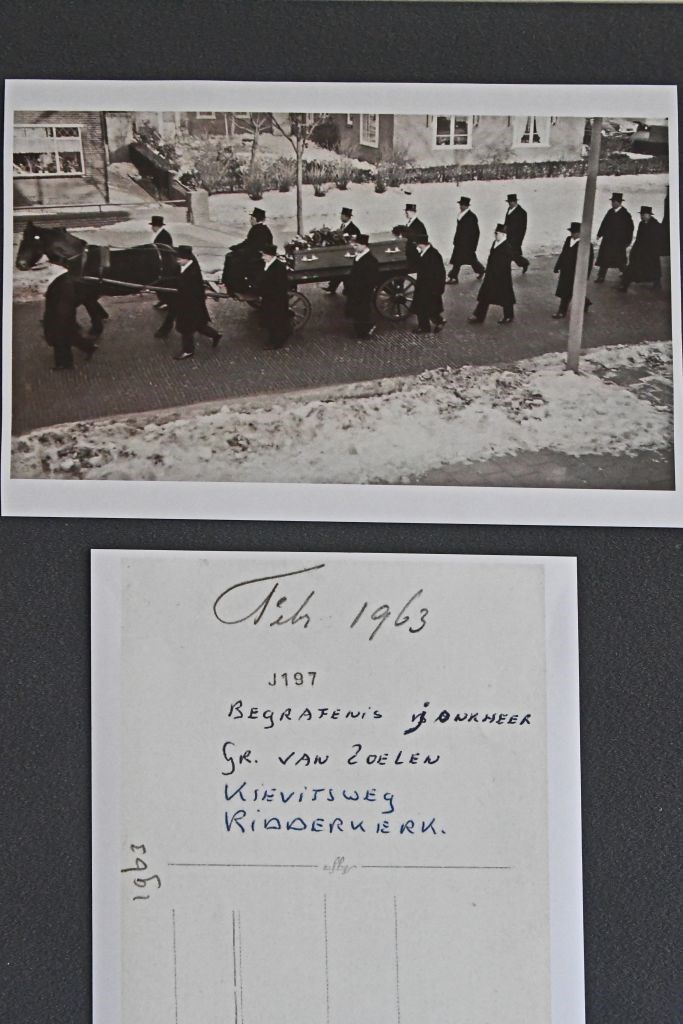 Febr 1963
J197
BEGRAFENIS JONKHEER
GR. VAN ZOELEN
KIEVITSWEG
RIDDERKERK.
1963